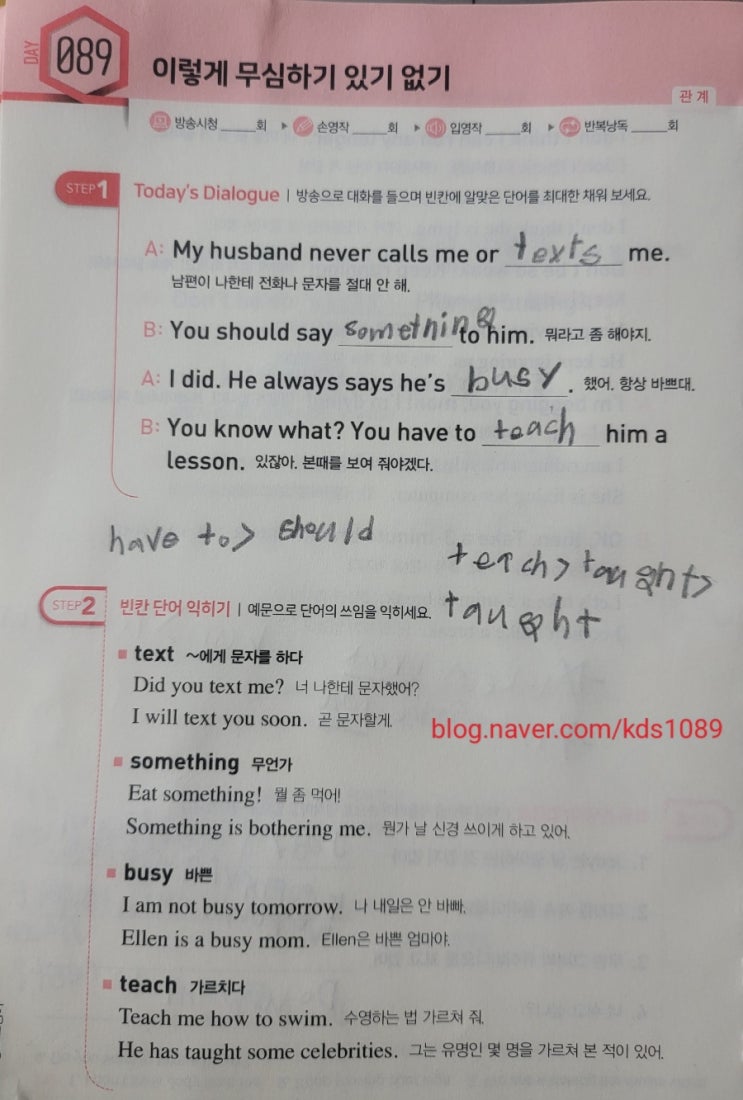 DAY 089 이렇게 무심하기 있기 없기
관계
방송시청 _____회 ▶ 손영작 _____회 ▶ 입영작 _____회 ▶ 반복낭독 _____회
STEP 1 Today's Dialogue | 방송으로 대화를 들으며 빈칸에 알맞은 단어를 최대한 채워 보세요.
A: My husband never calls me or texts me.
남편이 나한테 전화나 문자를 절대 안 해.
B: You should say something to him. 뭐라고 좀 해야지.
A: I did. He always says he's busy. 했어. 항상 바쁘대.
B: You know what? You have to teach him a
lesson. 있잖아. 본때를 보여 줘야겠다.
have to > should
teach > taught >
taught
STEP 2 빈칸 단어 익히기 | 예문으로 단어의 쓰임을 익히세요.
■ text ~에게 문자를 하다
Did you text me? 너 나한테 문자했어?
I will text you soon. 곧 문자할게.
blog.naver.com/kds1089
■ something 무언가
Eat something! 뭘 좀 먹어!
Something is bothering me. 뭔가 날 신경 쓰이게 하고 있어.
■ busy 바쁜
I am not busy tomorrow. 나 내일은 안 바빠.
Ellen is a busy mom. Ellen은 바쁜 엄마야.
■ teach 가르치다
Teach me how to swim. 수영하는 법 가르쳐 줘.
He has taught some celebrities. 그는 유명인 몇 명을 가르쳐 본 적이 있어.